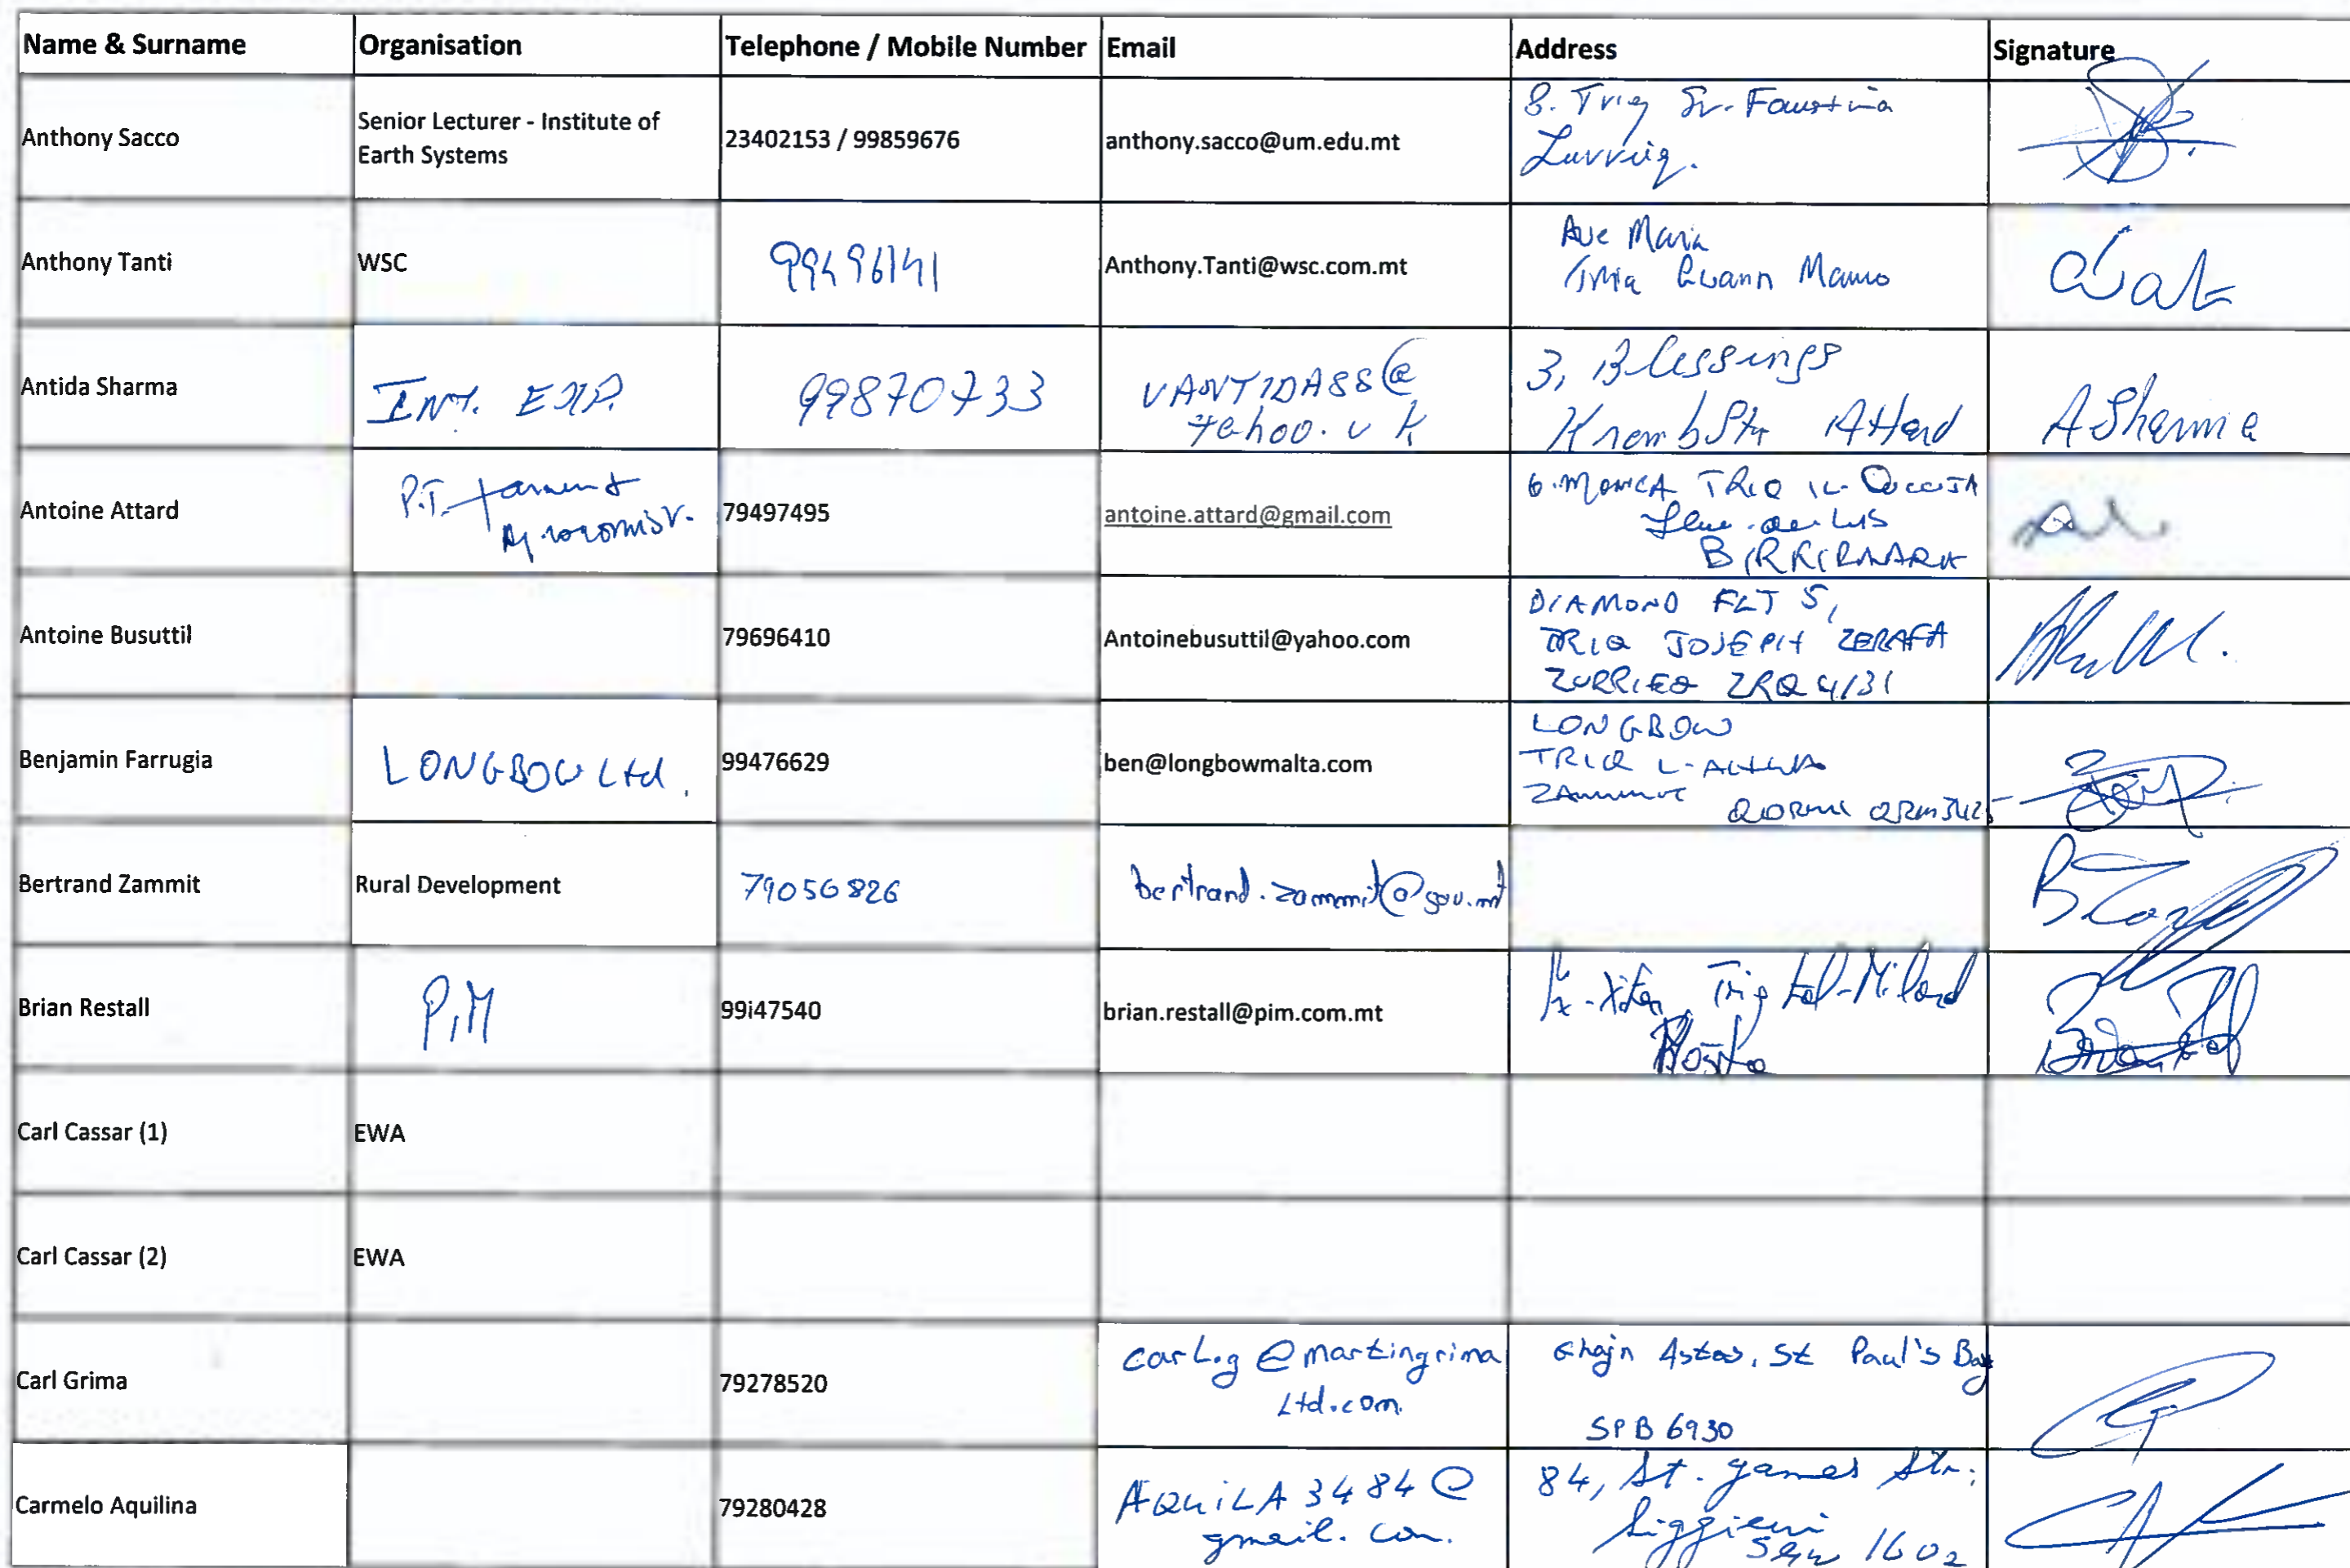 Name & Surname Organisation Telephone / Mobile Number Email Address Signature
Anthony Sacco Senior Lecturer - Institute of Earth Systems 23402153 / 99859676 anthony.sacco@um.edu.mt 8. Triq Sr. Faustina
Zurrieq.
Anthony Tanti WSC 99496141 Anthony.Tanti@wsc.com.mt Ave Maria
Mamo
Antida Sharma INT. EXP. 99870733 VANTIDASS@
yahoo.uk 3, Blessings
Attard ASharma
Antoine Attard P.T. 79497495 antoine.attard@gmail.com 6. MONICA TRIQ IL-
BIRKIRKARA
Antoine Busuttil 79696410 Antoinebusuttil@yahoo.com DIAMOND FLT 5,
TRIQ JOSEPH ZERAFA
ZURRIEQ ZRQ 4131
Benjamin Farrugia LONGBOW Ltd. 99476629 ben@longbowmalta.com LONGBOW
TRIQ
ZAMMIT QORMI
Bertrand Zammit Rural Development 79056826 bertrand.zammit@gov.mt
Brian Restall PiM 99i47540 brian.restall@pim.com.mt Triq
Mosta
Carl Cassar (1) EWA
Carl Cassar (2) EWA
Carl Grima 79278520 carl.g@martingrima
Ltd.com. Għajn Astas, St Paul's Bay
SPB 6930
Carmelo Aquilina 79280428 AQUILA3484@
gmail.com. 84, St. James Str.
Siggiewi
1602